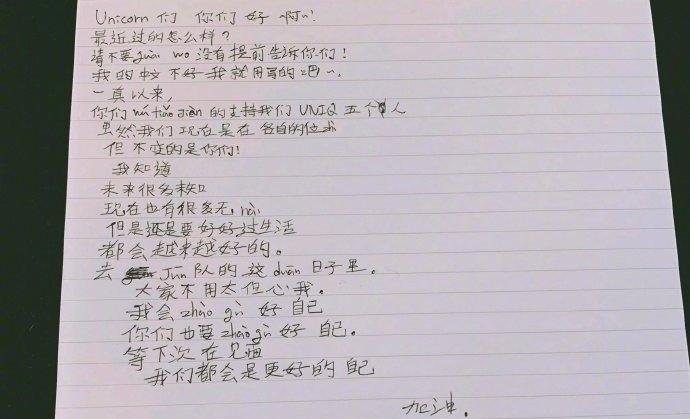 Unicorn 们 你们 好 啊~!
最近过的怎么样?
请不要guài wo 没有提前告诉你们!
我的中文不好 我就用写的吧~.
一真以来,
你们 wú tiáo jiàn 的支持我们 UNIQ 五个人
虽然我们现在是在各自的位
但不变的是你们!
我知道
未来很多未知
现在也有很多无 nài
但是还是要好好过生活
都会越来越好的。
去 jūn 队的这 duàn 日子里。
大家不用太但心我。
我会 zhào gù 好自己
你们也要 zhào gù 好自己.
等下次在见面
我们都会是更好的自己
加油.